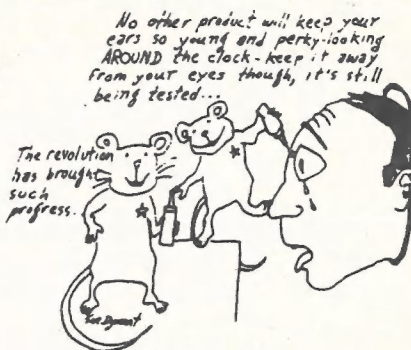 No other product will keep your
ears so young and perky-looking
AROUND the clock - keep it away
from your eyes though, it's still
being tested...
The revolution
has brought
such
progress.